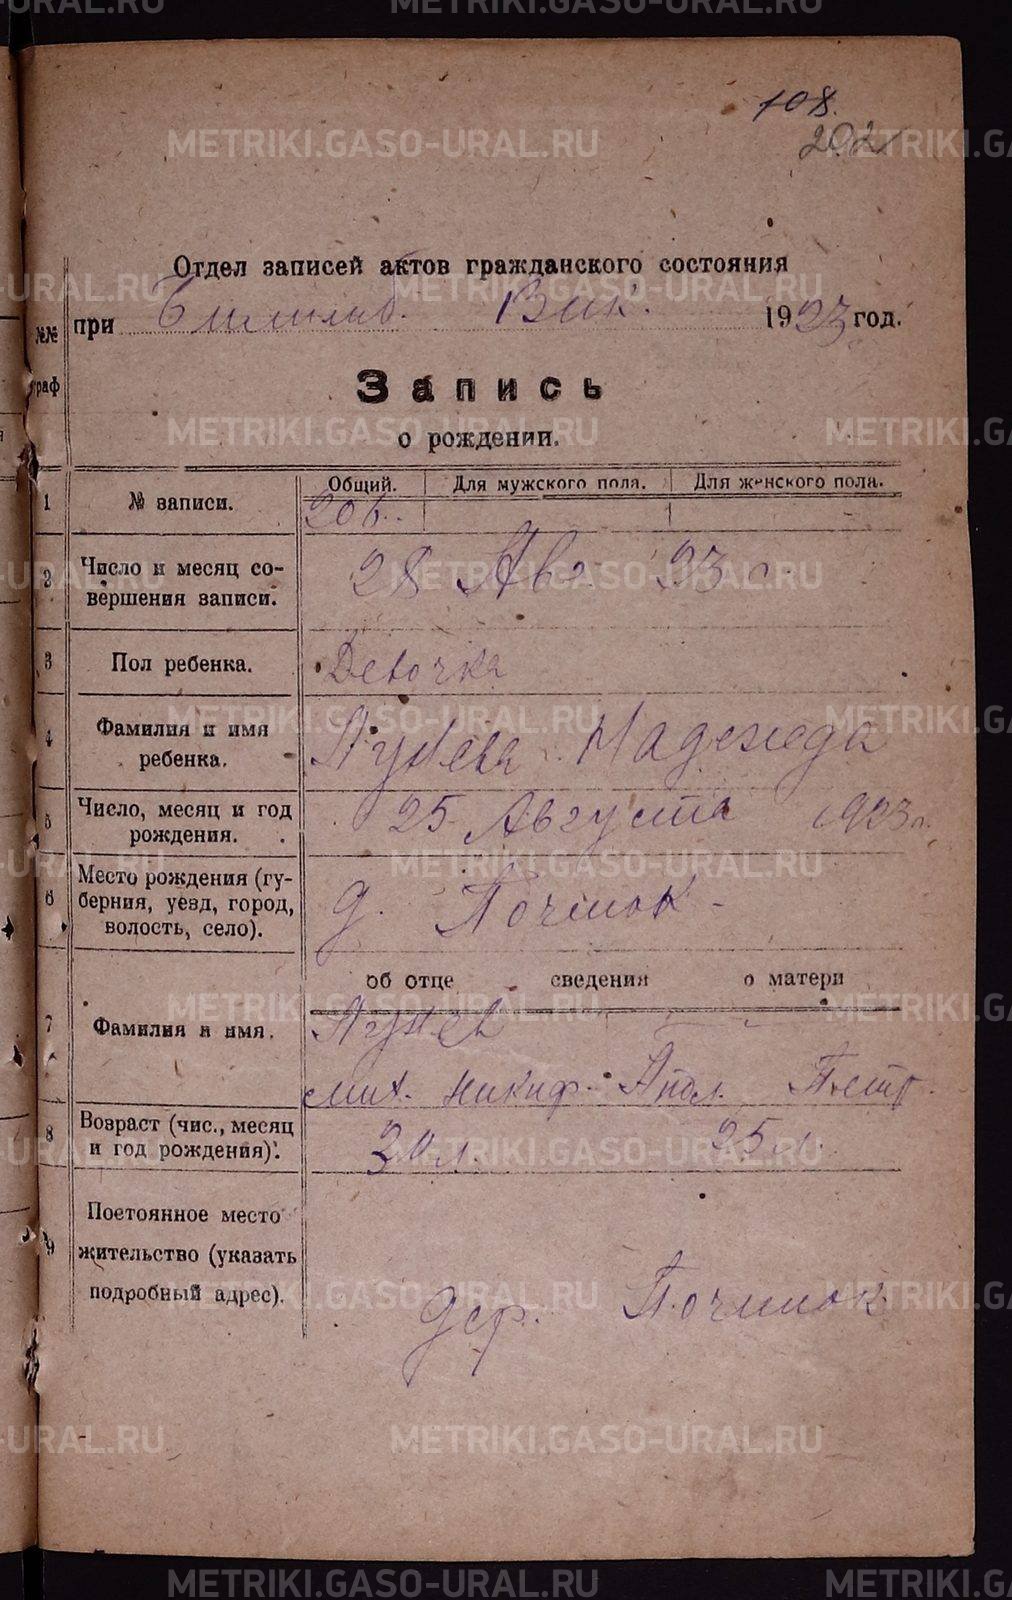 METRIKI.GASO-URAL.RU
108.
202
Отдел записей актов гражданского состояния
при Билимб. Вик. 1923 год.
№№ граф
Запись
о рождении.
Общий. Для мужского пола. Для женского пола.
1 № записи. 206.
2 Число и месяц со-
вершения записи. 28 Авг 23 г.
3 Пол ребенка. Девочка
4 Фамилия и имя
ребенка. Надежда
5 Число, месяц и год
рождения. 25 Августа 1923 г.
6 Место рождения (гу-
берния, уезд, город,
волость, село). д. Починок
об отце сведения о матери
7 Фамилия и имя.
мих. никиф. Апол. Петр.
8 Возраст (чис., месяц
и год рождения). 30 л. 25 л.
9 Постоянное место
жительство (указать
подробный адрес). дер. Починок